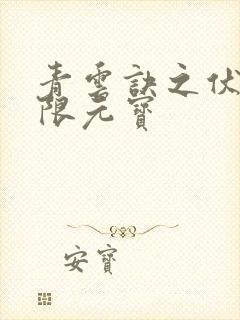 青雲訣之伏
限元寶
安寶